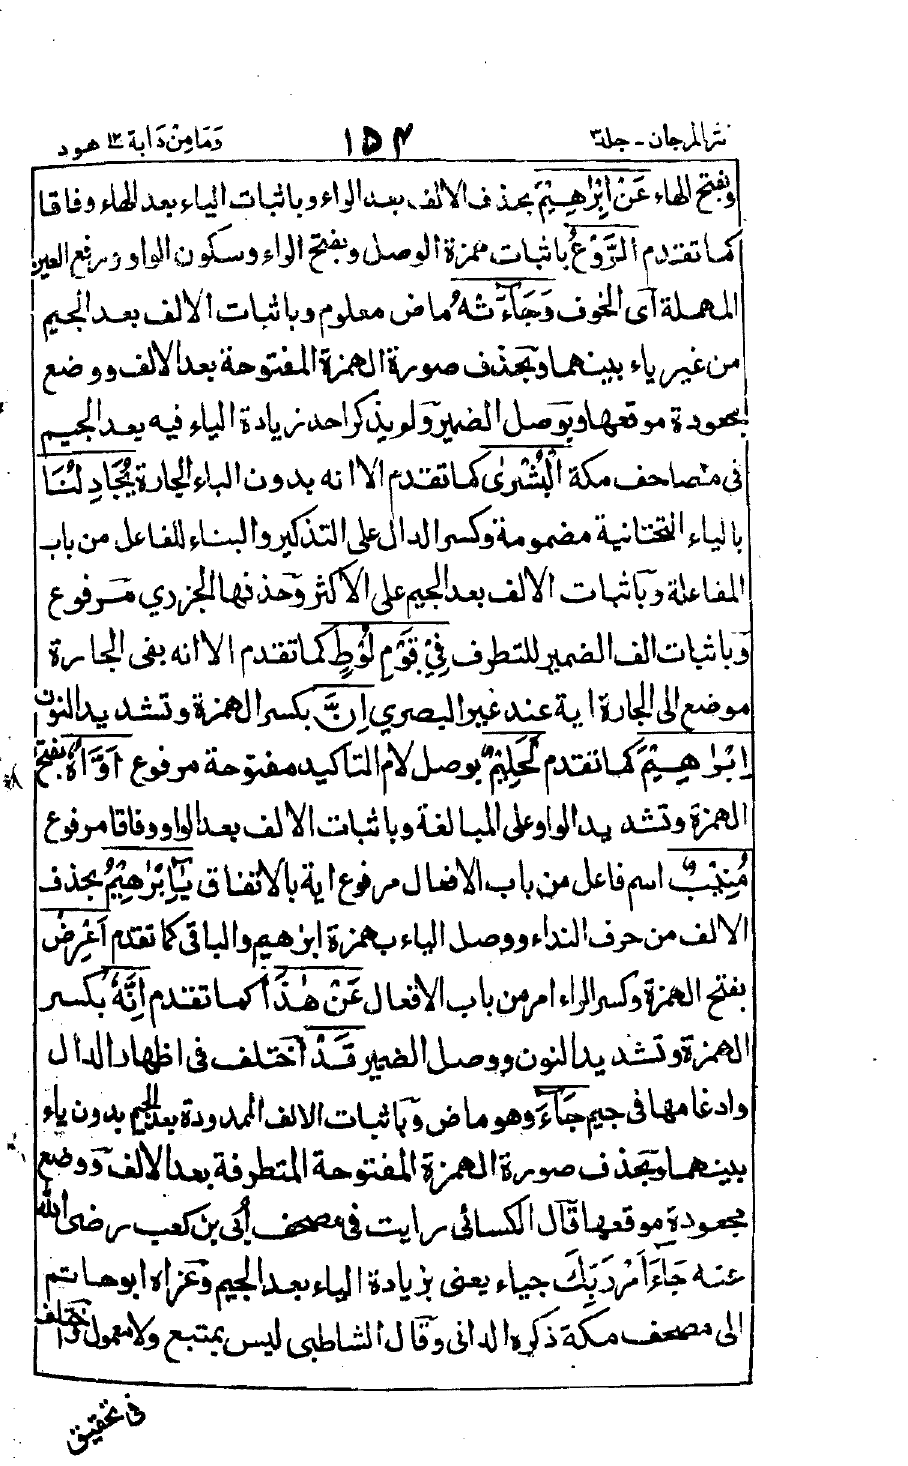 نثر المرجان - جلد ٣ ١٥٤ وَمَا مِنْ دَابة ١٢ هود
وبفتح الهاء عَنْ اِبْرٰهِيْمَ بحذف الالف بعد الراء وباثبات الياء بعد الهاء وفاقا
كما تقدم الرَّوْعُ باثبات همزة الوصل وبفتح الراء وسكون الواو ورفع العين
المهملة اى الخوف وَجَآءَتْهُ ماض معلوم وباثبات الالف بعد الجيم
من غير ياء بينهما وبحذف صورة الهمزة المفتوحة بعد الالف ووضع
مجعودة موقعها وبوصل الضمير ولم يذكر احد زيادة الياء فيه بعد الجيم
فى مصاحف مكة الْبُشْرٰى كما تقدم الا انه بدون الباء الجارة يُجَادِلُنَا
بالياء التحتانية مضمومة وكسر الدال على التذكير والبناء للفاعل من باب
المفاعلة وباثبات الالف بعد الجيم على الاكثر وحذفها الجزري مرفوع
وباثبات الف الضمير للتطرف فِيْ قَوْمِ لُوْطٍ كما تقدم الا انه بفى الجارة
موضع الى الجارة اية عند غير البصري اِنَّ بكسر الهمزة وتشديد النون
اِبْرٰهِيْمَ كما تقدم لَحَلِيْمٌ بوصل لام التاكيد مفتوحة مرفوع اَوَّاهٌ بفتح
الهمزة وتشديد الواو على المبالغة وباثبات الالف بعد الواو وفاقا مرفوع
مُنِيْبٌ اسم فاعل من باب الافعال مرفوع اية بالاتفاق يٰٓاِبْرٰهِيْمُ بحذف
الالف من حرف النداء ووصل الياء بهمزة ابرهيم والباقى كما تقدم اَعْرِضْ
بفتح الهمزة وكسر الراء امر من باب الافعال عَنْ هٰذَا كما تقدم اِنَّهٗ بكسر
الهمزة وتشديد النون ووصل الضمير قَدْ اختلف فى اظهار الدال
وادغامها فى جيم جَآءَ وهو ماض وباثبات الالف الممدودة بعد الجيم بدون ياء
بينهما وبحذف صورة الهمزة المفتوحة المتطرفة بعد الالف ووضع
مجعودة موقعها قال الكسائى رايت فى مصحف أبى بن كعب رضى الله
عنه جَاءَ اَمْرُ رَبِّكَ جياء يعنى بزيادة الياء بعد الجيم وعزاه ابو حاتم
الى مصحف مكة ذكره الدانى وقال الشاطبى ليس بمتبع ولا معمول واختلف
فى تحقيق